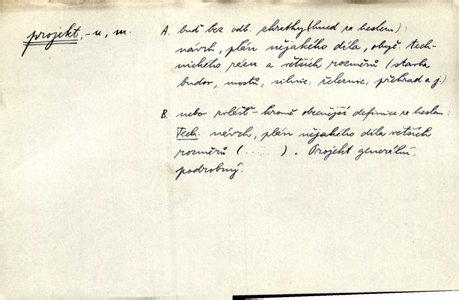 projekt, -u, m.
A. buď bez odb. zkratky (hned za heslem):
návrh, plán nějakého díla, obyč. tech-
nického rázu a větších rozměrů (stavba
budov, mostů, silnic, železnic, přehrad a j.)
B. nebo zvlášť - kromě obecnější definice za heslem:
Tech. návrh, plán nějakého díla větších
rozměrů (.....). Projekt generální,
podrobný.